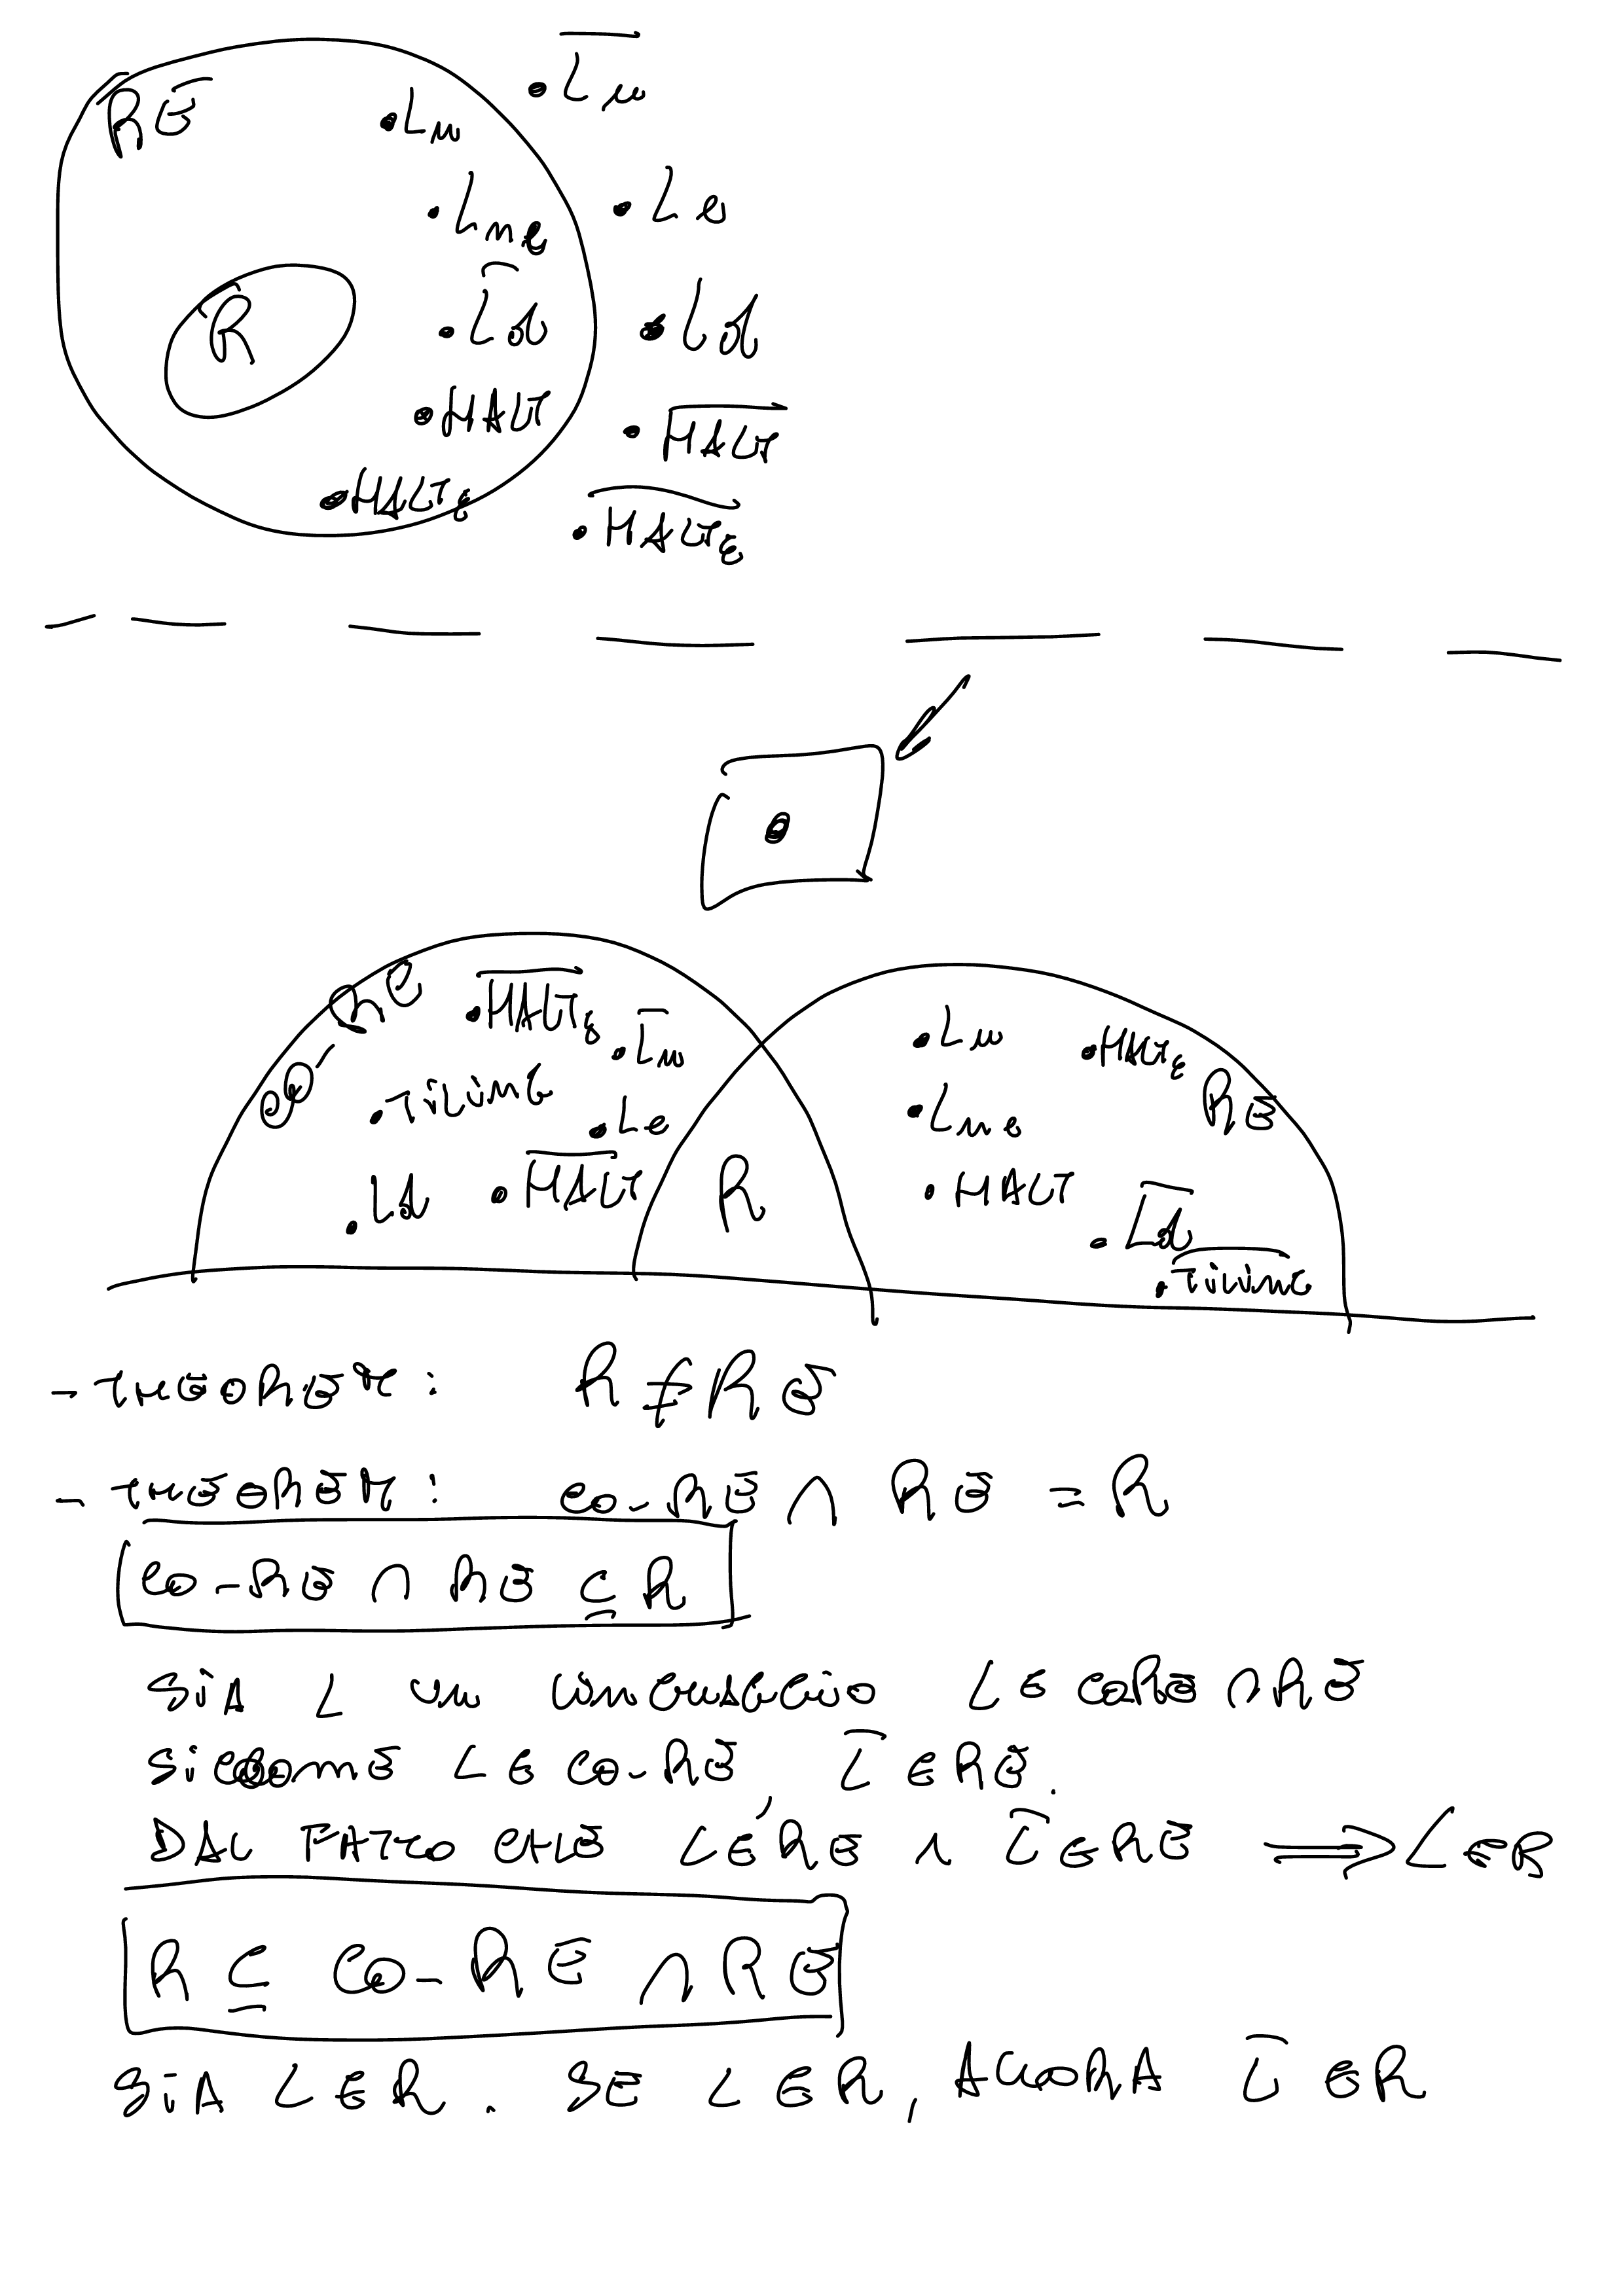 RE
.Lu
.L̅u̅
.Lne
.Le
R
.L̅d̅
.Ld
.HALT
.H̅A̅L̅T̅
.HALTε
.H̅A̅L̅T̅ε
co-RE
.H̅A̅L̅T̅ε
.L̅u̅
.TiLiNG
.Le
.Ld
.H̅A̅L̅T̅
R
.Lu
.HALTε
RE
.Lne
.HALT
.L̅d̅
.T̅i̅L̅i̅N̅G̅
- THEOREM: R ≠ RE
- THEOREM: co-RE ∩ RE = R
co-RE ∩ RE ⊆ R
SiA L UN LiNGUAGGiO L ∈ coRE ∩ RE
SiCCOME L ∈ co-RE, L̅ ∈ RE.
DAL FATTO CHE L ∈ RE ∧ L̅ ∈ RE ⟹ L ∈ R
R ⊆ co-RE ∩ RE
SiA L ∈ R. SE L ∈ R, ALLORA L̅ ∈ R